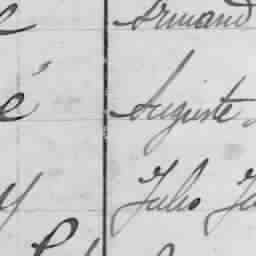 Armand
é Auguste
y Julio